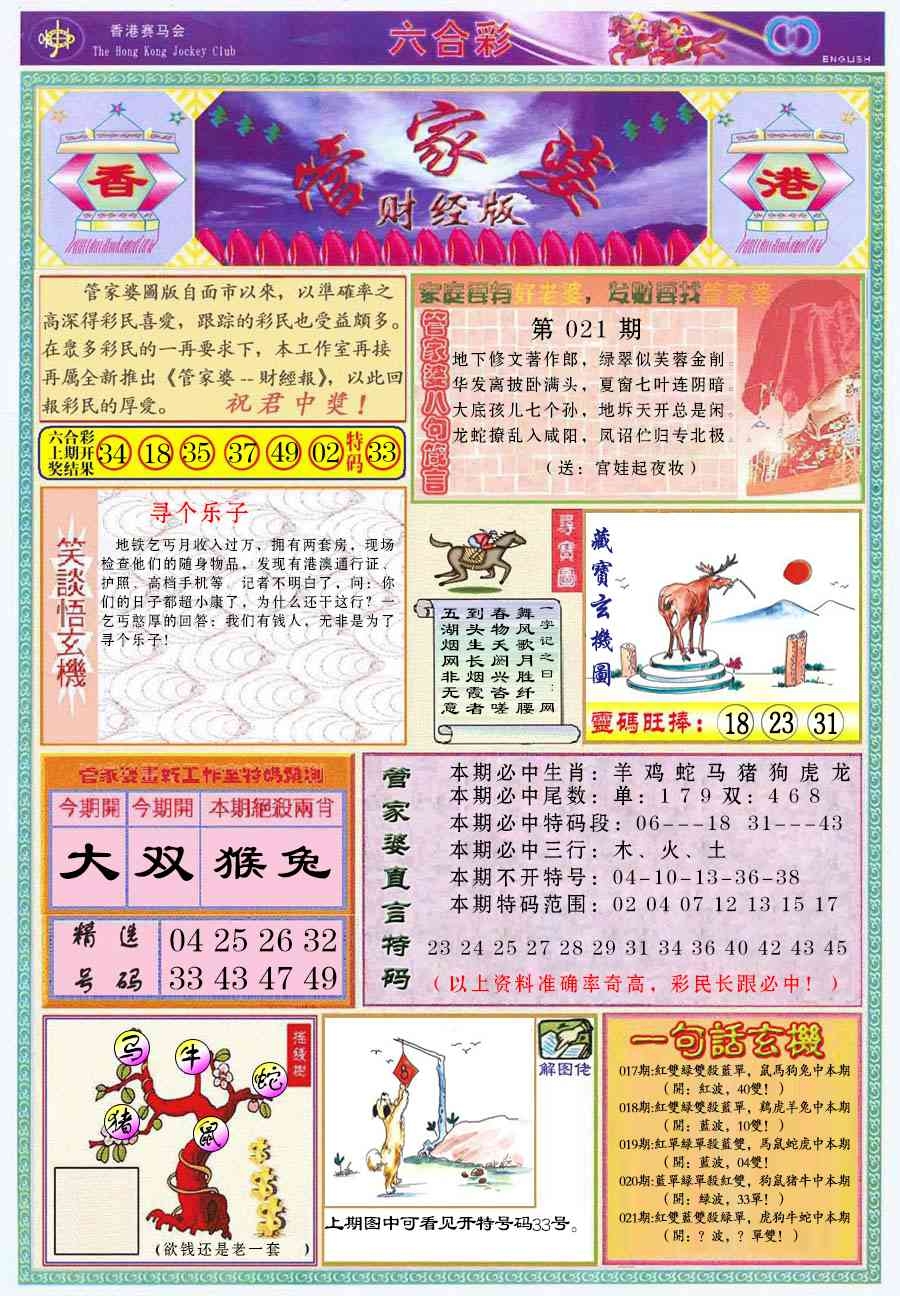 香港赛马会
The Hong Kong Jockey Club
六合彩
ENGLISH
香
管家婆
财经版
港
管家婆圖版自面市以來，以準確率之
高深得彩民喜愛，跟踪的彩民也受益頗多。
在眾多彩民的一再要求下，本工作室再接
再厲全新推出《管家婆--財經報》，以此回
報彩民的厚愛。
祝君中獎！
六合彩
上期开
奖结果
34 18 35 37 49 02
特码
33
家庭要有好老婆，发财要找管家婆
管家婆八句箴言
第 021 期
地下修文著作郎，绿翠似芙蓉金削。
华发离披卧满头，夏窗七叶连阴暗。
大底孩儿七个孙，地坼天开总是闲。
龙蛇撩乱入咸阳，凤诏伫归专北极。
（送：宫娃起夜妆）
笑談悟玄機
寻个乐子
地铁乞丐月收入过万，拥有两套房，现场
检查他们的随身物品，发现有港澳通行证、
护照、高档手机等，记者不明白了，问：你
们的日子都超小康了，为什么还干这行？一
乞丐憨厚的回答：我们有钱人，无非是为了
寻个乐子！
尋寶圖
一字记之曰：网
舞风歌月胜纤腰
春物天阏兴咨嗟
到头生长烟霞者
五湖烟网非无意
藏寶玄機圖
靈碼旺捧：
18 23 31
管家婆最新工作室特碼預測
今期開
今期開
本期絕殺兩肖
大
双
猴 兔
精选
号码
04 25 26 32
33 43 47 49
管家婆直言特码
本期必中生肖：羊 鸡 蛇 马 猪 狗 虎 龙
本期必中尾数：单：1 7 9 双：4 6 8
本期必中特码段：06---18 31---43
本期必中三行：木、火、土
本期不开特号：04-10-13-36-38
本期特码范围：02 04 07 12 13 15 17
23 24 25 27 28 29 31 34 36 40 42 43 45
（以上资料准确率奇高，彩民长跟必中！）
摇钱樹
马
牛
蛇
猪
鼠
（欲钱还是老一套 ）
解图佬
上期图中可看见开特号码33号。
一句話玄機
017期:紅雙緑雙殺藍單，鼠馬狗兔中本期
（開：紅波，40雙！）
018期:紅雙緑雙殺藍單，鷄虎羊兔中本期
（開：藍波，10雙！）
019期:紅單緑單殺藍雙，馬鼠蛇虎中本期
（開：藍波，04雙！
020期:藍單緑單殺紅雙，狗鼠猪牛中本期
（開：緑波，33單！）
021期:紅雙藍雙殺緑單，虎狗牛蛇中本期
（開：？波，？單雙！）